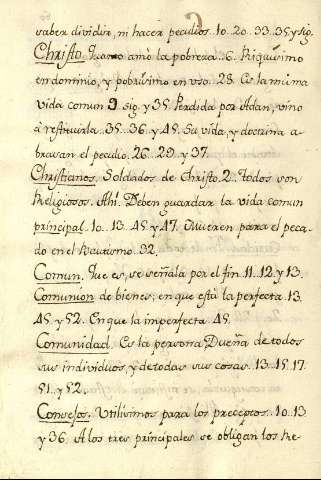 saber dividir, ni hacer peculios. 10. 20. 33. 35 y sig.
Christo. Quanto amò la pobreza. 6. Riquisimo
en dominio, y pobrisimo en uso. 28. Es la misma
vida comun 9 sig. y 35. Perdida por Adan, vino
à restituirla. 35. 36. y 45. Su vida, y doctrina a-
brasan el peculio. 26. 29. y 37.
Christianos. Soldados de Christo. 2. Todos son
Religiosos. Ahi. Deben guardar la vida comun
principal. 10. 13. 45. y 47. Mueren para el peca-
do en el Bautismo. 32.
Comun. Que es, se señala por el fin. 11. 12. y 13.
Comunion de bienes; en que està la perfecta. 13.
45. y 52. En que la imperfecta. 45.
Comunidad. Es la persona Dueña de todos
sus individuos, y de todas sus cosas. 13. 15. 17.
51. y 52.
Consejos. Utilisimos para los preceptos. 10. 13
y 36. A los tres principales se obligan los Re-